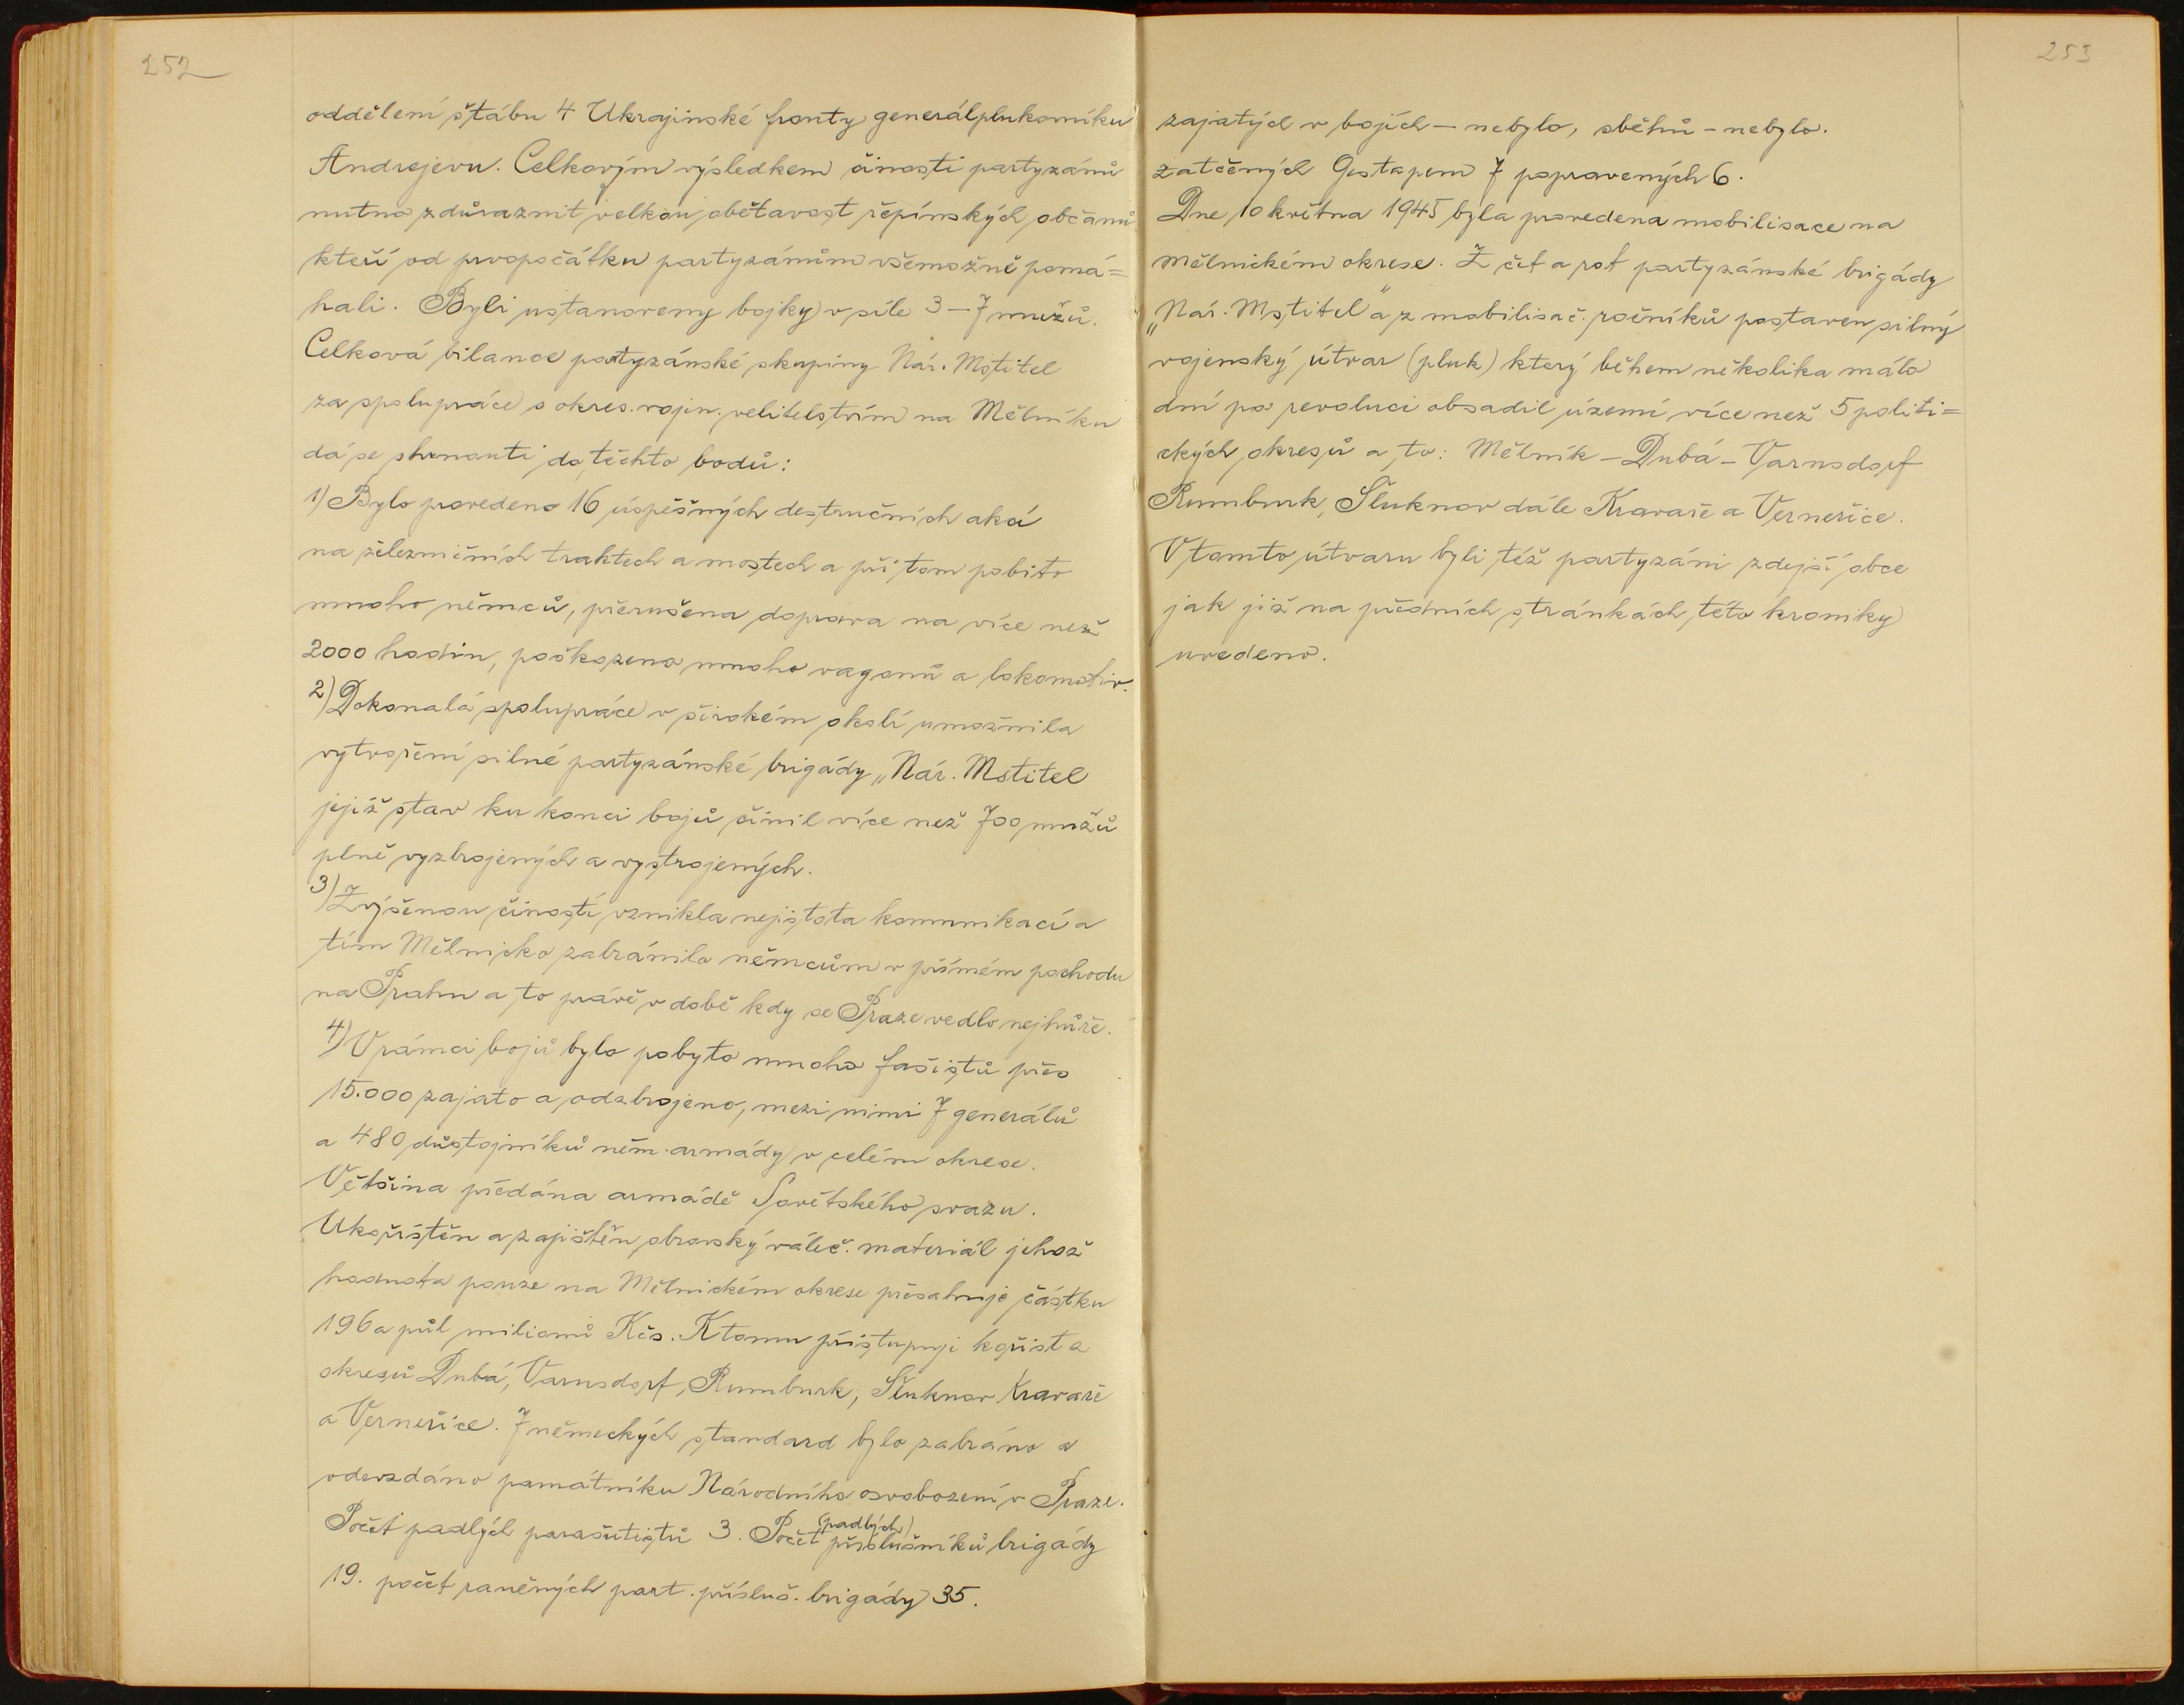 252
oddělení štábu 4 Ukrajinské fronty generálplukovníku
Andrejevu. Celkovým výsledkem činosti partyzánů
nutno zdůraznit velkou obětavost řepínských občanů
kteří od prvopočátku partyzánům všemožně pomá=
hali. Byli ustanoveny bojky v síle 3-7 mužů.
Celková bilance partyzánské skupiny Nár. Mstitel
za spolupráce s okres. vojen. velitelstvím na Mělníku
dá se shrnouti do těchto bodů:
1) Bylo provedeno 16 úspěšných destručních akcí
na železničních traktech a mostech a při tom pobito
mnoho němců, přerušena doprava na více než
2000 hodin, poškozeno mnoho vagonů a lokomotiv.
2) Dokonalá spolupráce v širokém okolí umožnila
vytvoření silné partyzánské brigády „Nár. Mstitel
jejíž stav ku konci bojů činil více než 700 mužů
plně vyzbrojených a vystrojených.
3) Zvýšenou čiností vznikla nejistota komunikací a
tím Mělnicko zabránilo němcům v přímém pochodu
na Prahu a to právě v době kdy se Praze vedlo nejhůře.
4) V rámci bojů bylo pobyto mnoho fašistů přes
15.000 zajato a odzbrojeno, mezi nimi 7 generálů
a 480 důstojníků něm. armády v celém okrese.
Většina předána armádě Sovětského svazu.
Ukořistěn a zajištěn obrovský váleč. materiál jehož
hodnota pouze na Mělnickém okrese přesahuje částku
196 a půl milionů Kčs. K tomu přistupuje kořist z
okresů Dubá, Varnsdorf, Rumburk, Šluknov Kravaře
a Verneřice. 7 německých standard bylo zabráno a
odevzdáno památníku Národního osvobození v Praze.
Počet padlých parašutistů 3. Počet (padlých) příslušníků brigády
19. počet raněných part. přísluš. brigády 35.
253
zajatých v bojích - nebylo, sběhů - nebylo.
zatčených Gestapem 7 popravených 6.
Dne 10 května 1945 byla provedena mobilisace na
mělnickém okrese. Z čet a rot partyzánské brigády
„Nár. Mstitel" a z mobilisač. ročníků postaven silný
vojenský útvar (pluk) který během několika málo
dní po revoluci obsadil území více než 5 politi=
ckých okresů a to: Mělník - Dubá - Varnsdorf
Rumburk, Šluknov dále Kravaře a Verneřice.
V tomto útvaru byli též partyzáni zdejší obce
jak již na předních stránkách této kroniky
uvedeno.